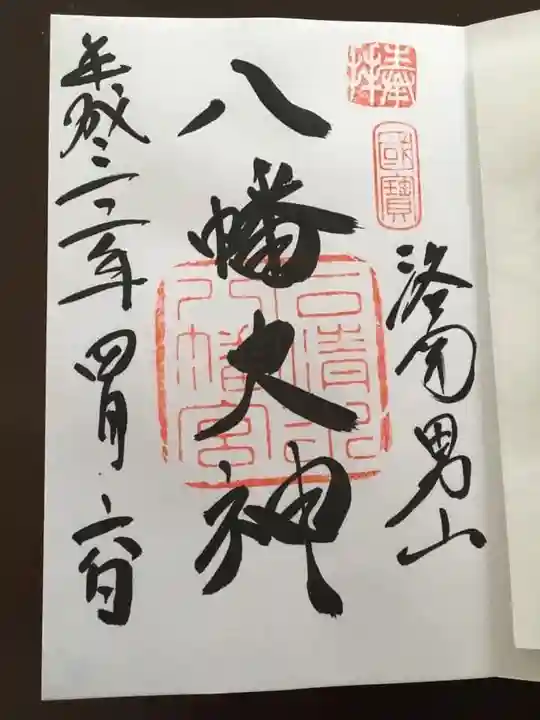 奉拝
國寶
洛南男山
石清水
八幡宮
八幡大神
平成二十二年四月六日